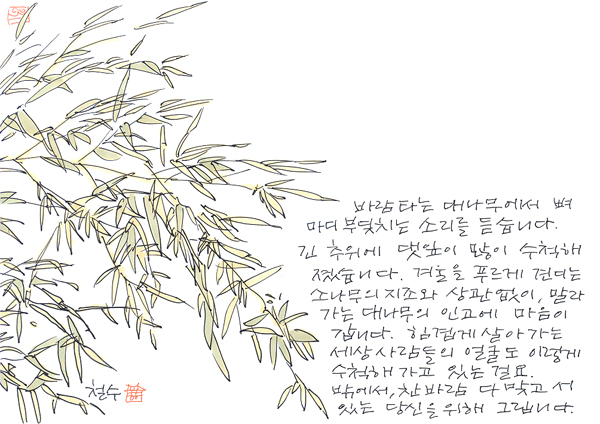 바람 타는 대나무에서 뼈
마디 부딪치는 소리를 듣습니다.
긴 추위에 댓잎이 많이 수척해
졌습니다. 겨울을 푸르게 견디는
소나무의 지조와 상관없이, 말라
가는 대나무의 인고에 마음이
갑니다. 힘겹게 살아가는
세상 사람들의 얼굴도 이렇게
수척해 가고 있는 걸요.
밖에서, 찬바람 다 맞고 서
있는 당신을 위해 그립니다.
철수